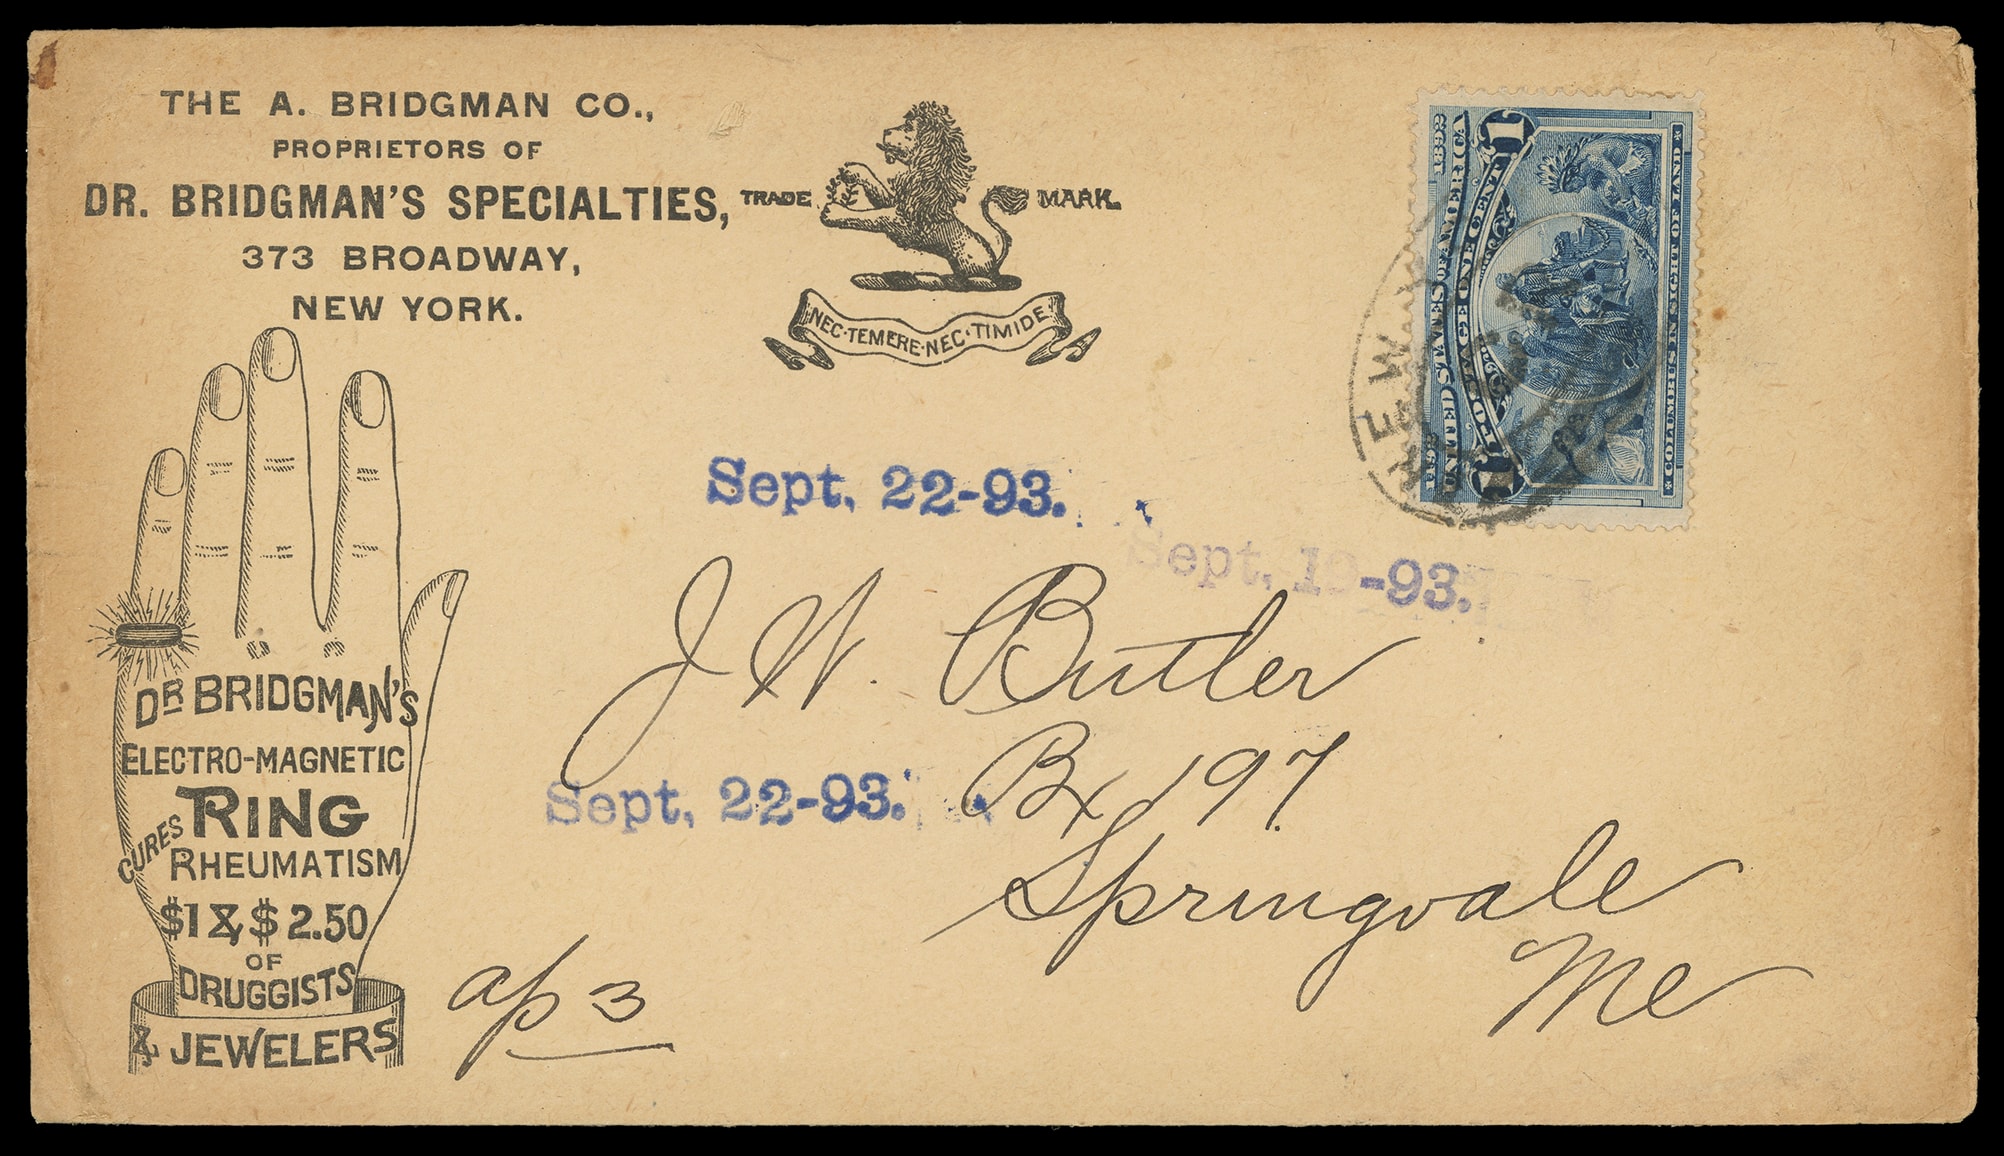 THE A. BRIDGMAN CO.,
PROPRIETORS OF
DR. BRIDGMAN'S SPECIALTIES,
373 BROADWAY,
NEW YORK.
TRADE MARK.
NEC·TEMERE·NEC·TIMIDE·
1892
UNITED STATES OF AMERICA
POSTAGE ONE CENT
1
1
1492
COLUMBUS IN SIGHT OF LAND
NEW Y
Sept. 22-93.
Sept. 19-93.
J W. Butler
Bx 197
Sept. 22-93.
Springvale
Me
DR BRIDGMAN'S
ELECTRO-MAGNETIC
RING
CURES RHEUMATISM
$1 & $2.50
OF
DRUGGISTS
& JEWELERS
ap 3